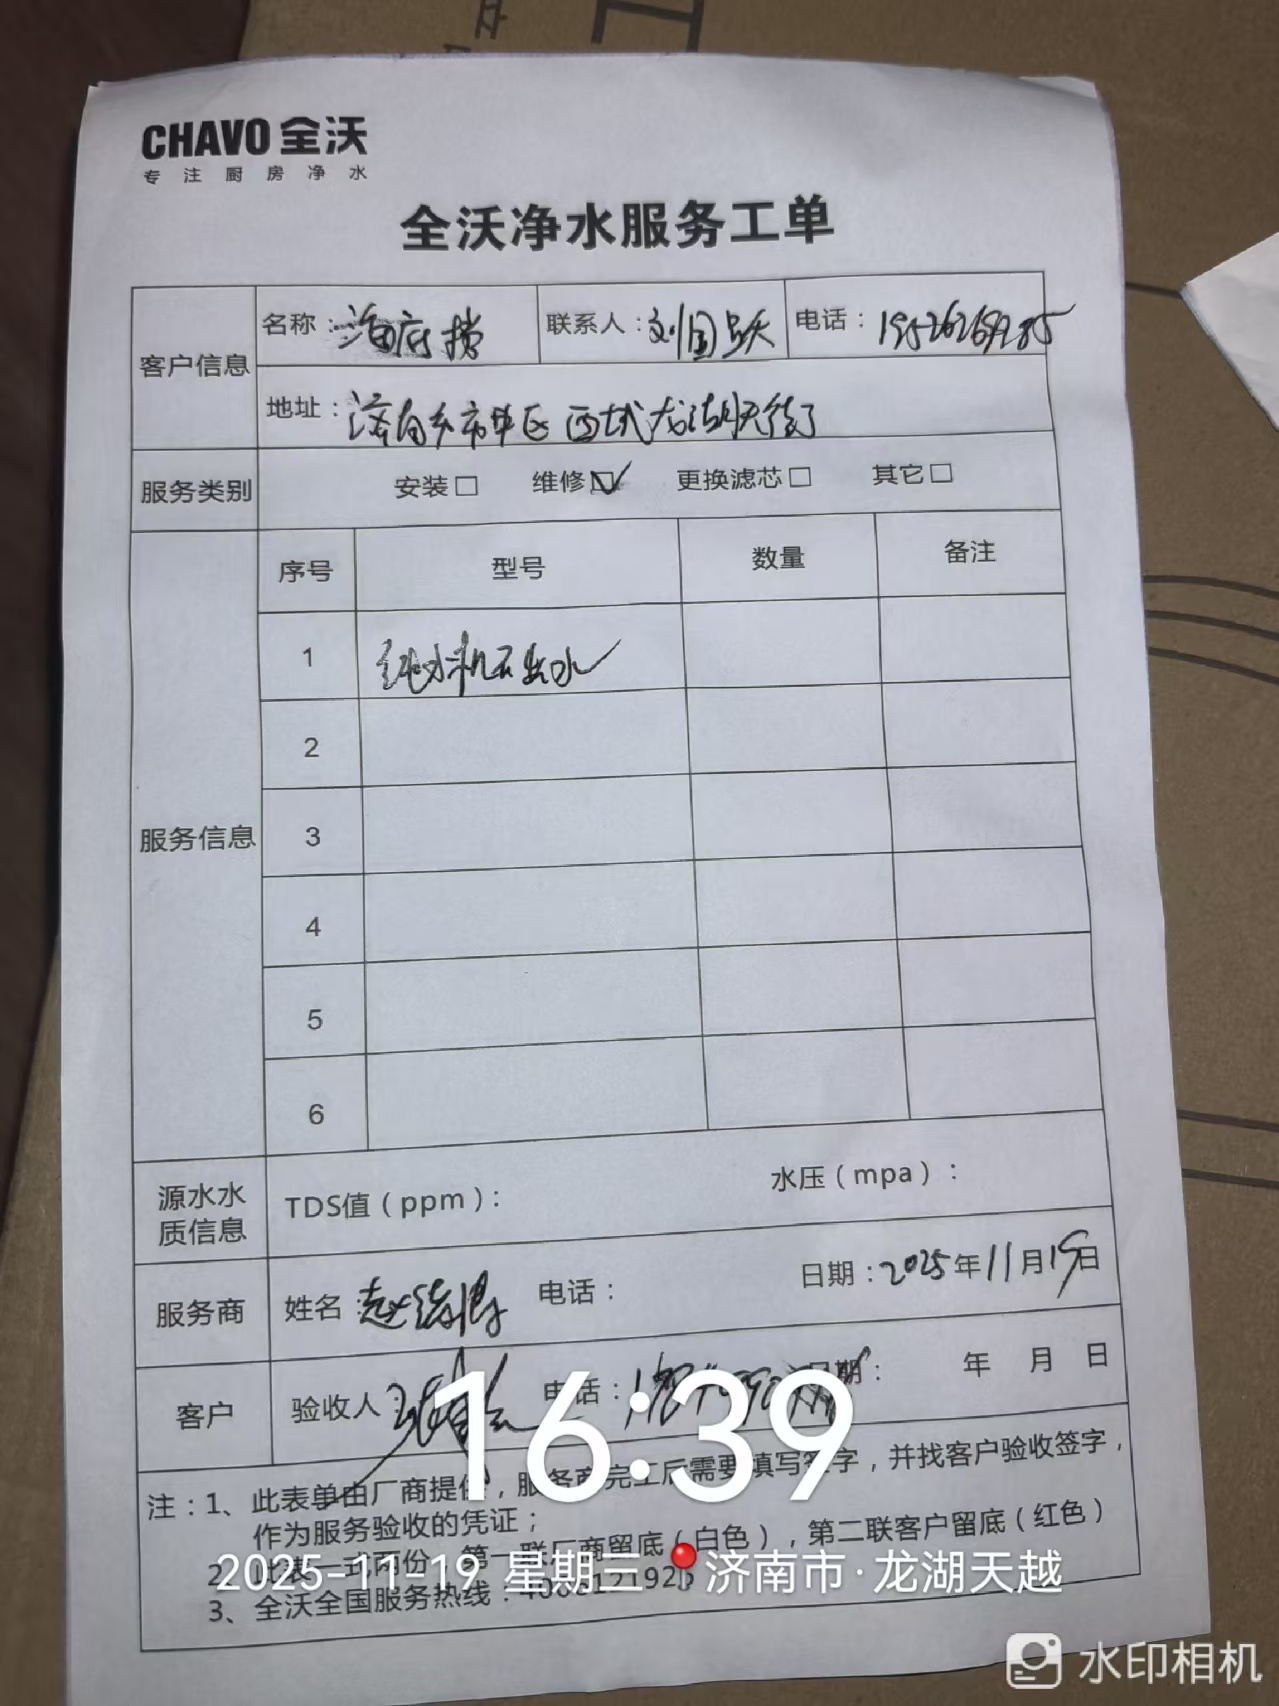 CHAVO 全沃
专注厨房净水
全沃净水服务工单
客户信息 名称： 联系人：刘国 电话：
地址： 市中区 西城龙湖天街
服务类别 安装□ 维修☑ 更换滤芯□ 其它□
服务信息 序号 型号 数量 备注
1 纯水机不出水
2
3
4
5
6
源水水质信息 TDS值（ppm）： 水压（mpa）：
服务商 姓名：赵 电话： 日期：2025年11月19日
客户 验收人： 电话： 日期： 年 月 日
注：1、此表单由厂商提供，服务商完工后需要填写签字，并找客户验收签字，
作为服务验收的凭证；
2、此表一式两份，第一联厂商留底（白色），第二联客户留底（红色）
3、全沃全国服务热线：
16:39
2025-11-19 星期三 济南市·龙湖天越
水印相机